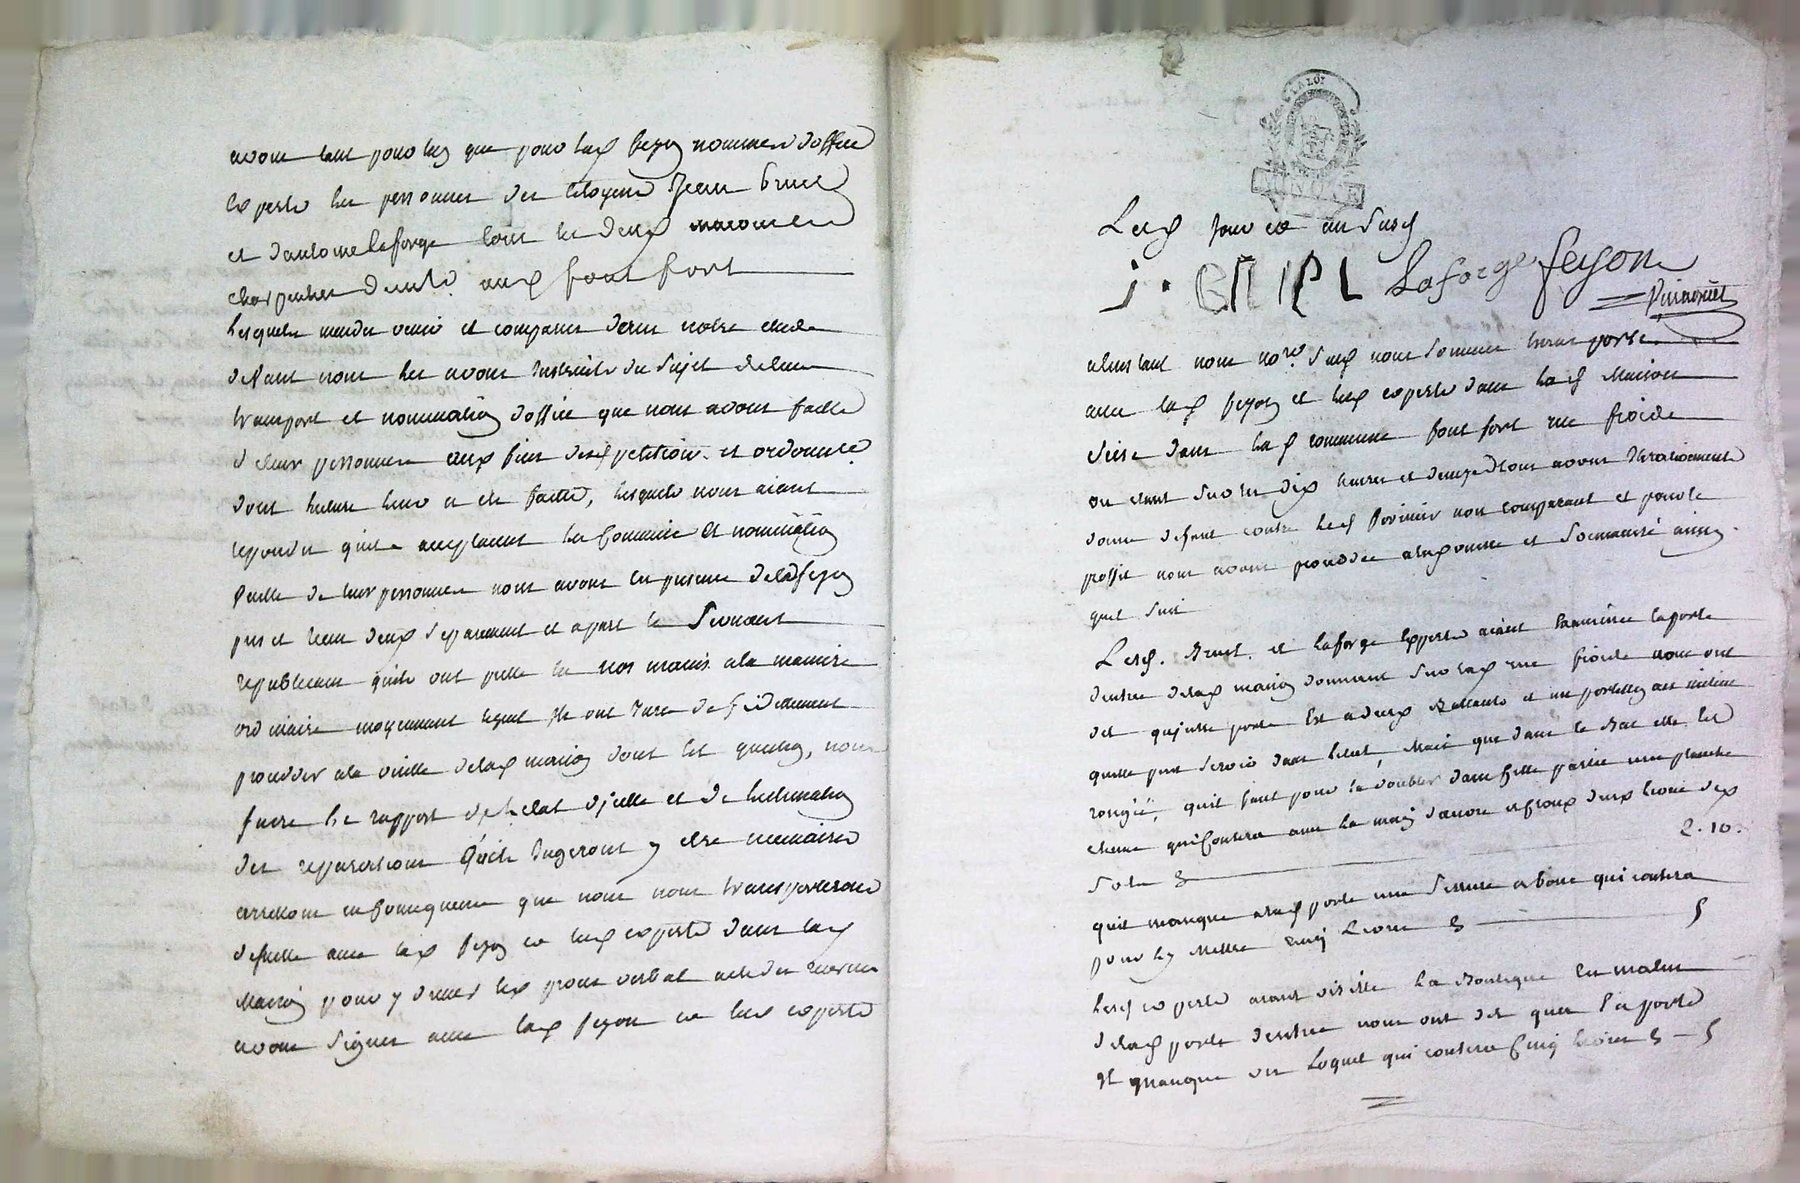 avons tant pour luy que pour lad feyon nommes doffice
experts les personnes des citoyens Jean Bruel
et dantoine laforge tous les deux
charpentier aud font fort
lesquels mendes venir et comparus devant notre etude
devant nous les avons Instruits du Sujet de leur
transport et nomination doffice que nous avons faitte
de leur personnes aux fins desd petition et ordonnce
dont lecture leur a ete faitte, lesquels nous aiant
repondu quils acceptaient la Commission et nomination
faitte de leur personnes nous avons en presence de lad feyon
pris et recu deux separement et apart le Serment
republicain quils ont prette en nos mains a la maniere
ordinaire moyennant lequel Ils ont Jure de fidelement
proceder a la visitte delad maison dont Est question, nous
faire le rapport de letat dicelle et de lestimation
des reparations quils Jugeront y etre necessaires
arrettons en Consequence que nous nous transporterons
desuitte avec lad feyon et lesd experts dans lad
Maison pour y dresser led proces verbal
avons Signer avec lad feyon et lesd experts
Lesd Jour et an Susd
J. BRUEL Laforge feyon
alinstant nous nore. Susd nous Sommes transporte
avec lad feyon et lesd experts dans lad Maison
Sise dans lad commune font fort rue froide
ou etant Sur les dix heures et demye Nous avons
donne defaut contre led non comparant et pour le
proffit nous avons procedde et Sommaire ainsy
quil Suit
Lesd. Bruel. et laforge Experts aiant Examinee laporte
dentree delad maison donnant Sur lad rue froide nous ont
dit quicelle porte Est a deux Battants et un
quelle peut Servir dans letat, Mais que dans le Bas elle Est
rongée, quil faut pour la doubler dans cette partie une planche
chene qui Coutera avec la main doeuvre deux livres dix
Sols
2.10.
quil manque alad porte une Serrure a bone qui coutera
pour ly Mettre Cinq Livres 5
lesd experts aiant visitte la Boutique
delad porte dentree nous ont dit qua la porte
Il manque un Loquet qui coutera Cinq livres 5